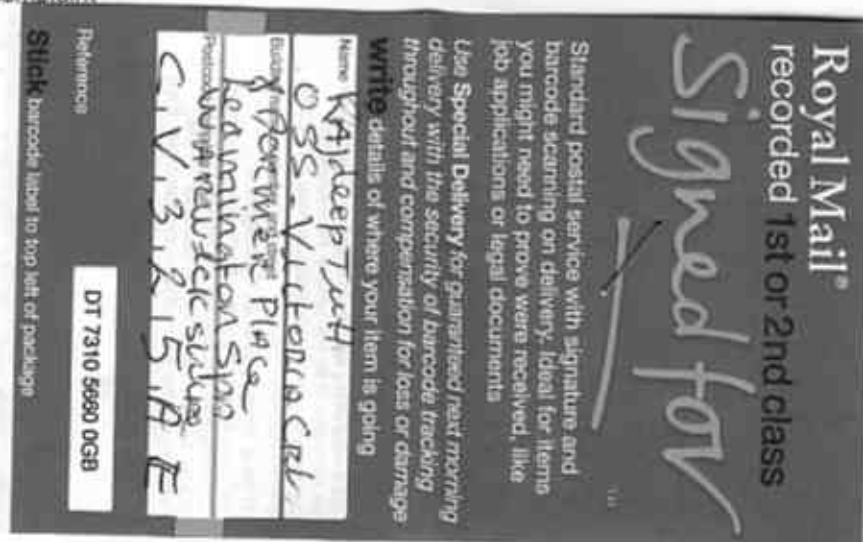 Royal Mail®
recorded 1st or 2nd class
Signed for
Standard postal service with signature and
barcode scanning on delivery. Ideal for items
you might need to prove were received, like
job applications or legal documents
Use Special Delivery for guaranteed next morning
delivery with the security of barcode tracking
throughout and compensation for loss or damage
write details of where your item is going
Name RAJdeep
OSS - Victoria
Building Place
Leamington Spa
Postcode
C.V.3.2.1.5.A.E
Reference
DT 7310 5660 0GB
Stick barcode label to top left of package